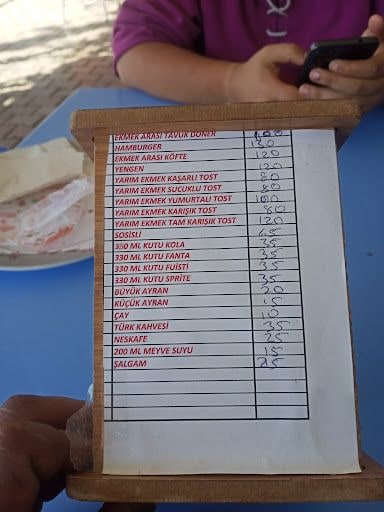 EKMEK ARASI TAVUK DÖNER 100
HAMBURGER 130
EKMEK ARASI KÖFTE 120
YENGEN 120
YARIM EKMEK KAŞARLI TOST 80
YARIM EKMEK SUCUKLU TOST 80
YARIM EKMEK YUMURTALI TOST 100
YARIM EKMEK KARIŞIK TOST 80
YARIM EKMEK TAM KARIŞIK TOST 120
SOSİSLİ 65
330 ML KUTU KOLA 35
330 ML KUTU FANTA 35
330 ML KUTU FUİSTİ 35
330 ML KUTU SPRİTE 35
BÜYÜK AYRAN 20
KÜÇÜK AYRAN 15
ÇAY 10
TÜRK KAHVESİ 35
NESKAFE 25
200 ML MEYVE SUYU 15
ŞALGAM